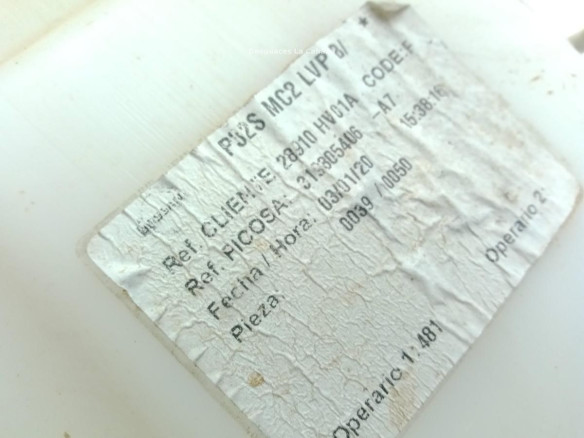 P32S MC2 LVP 8/
Ref. CLIENTE: 28910 HV01A CODE:F
Ref. FICOSA: 319805406 -A7
Fecha / Hora: 03/01/20 15:38:16
Pieza: 0039 / 0050
Operario 1: 481
Operario 2: